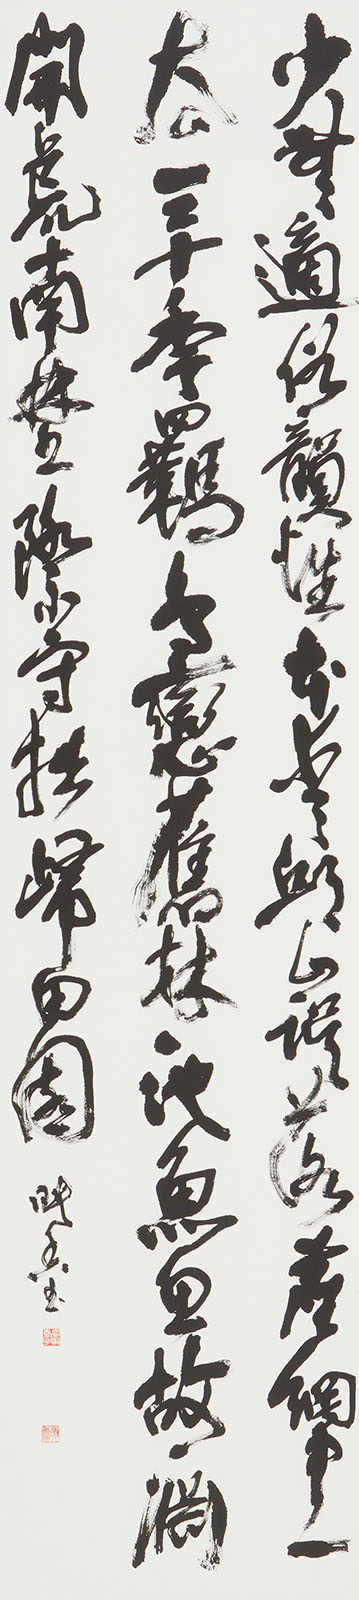 少無適俗韻性本愛邱山誤落塵網中一
去三十年羈鳥戀舊林池魚思故淵
開荒南埜際守拙歸田園